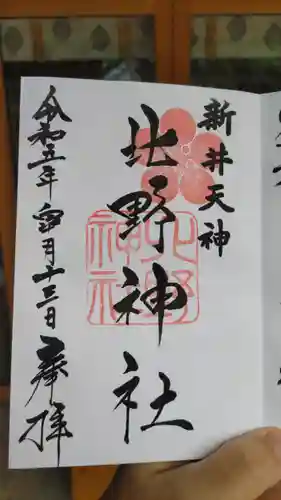 新井天神
北野神社
令和五年卯月十三日奉拝
北野
神社